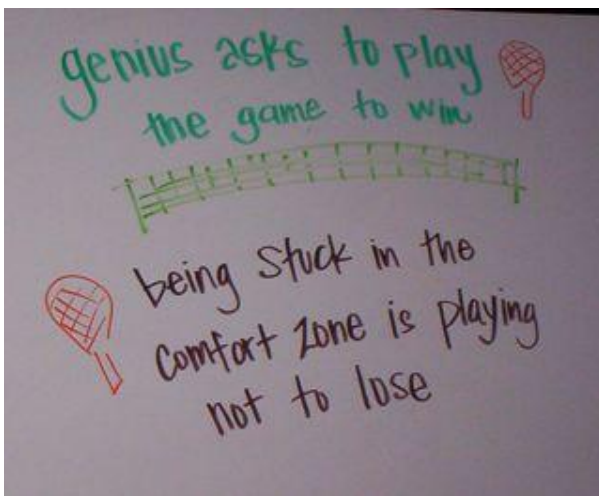 genius asks to play
the game to win
being stuck in the
comfort zone is playing
not to lose